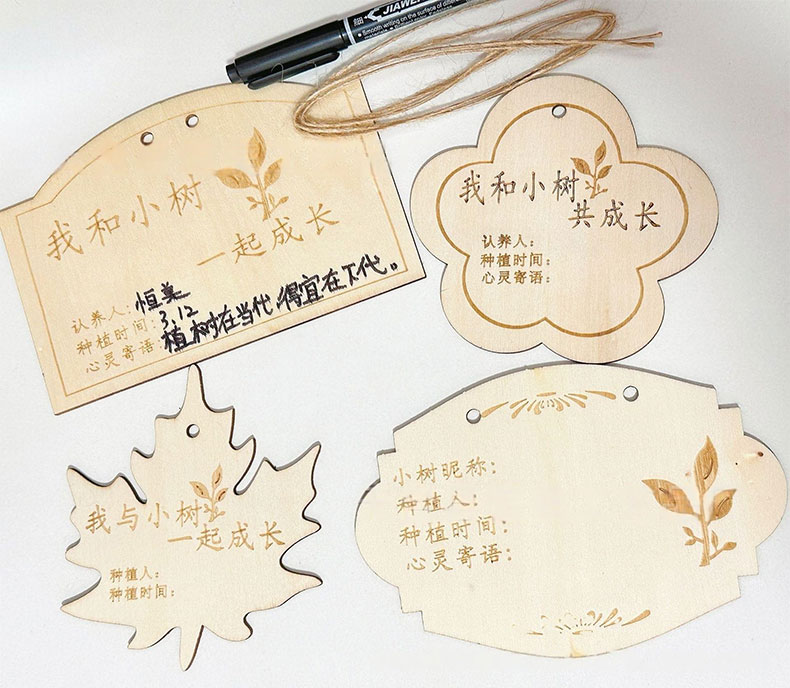 细
JIAWEI
Smooth writing on the surface of differen
我和小树
一起成长
认养人：恒美
种植时间：3.12
心灵寄语：植树在当代，得宜在下代。
我和小树
共成长
认养人：
种植时间：
心灵寄语：
我与小树
一起成长
种植人：
种植时间：
小树昵称：
种植人：
种植时间：
心灵寄语：